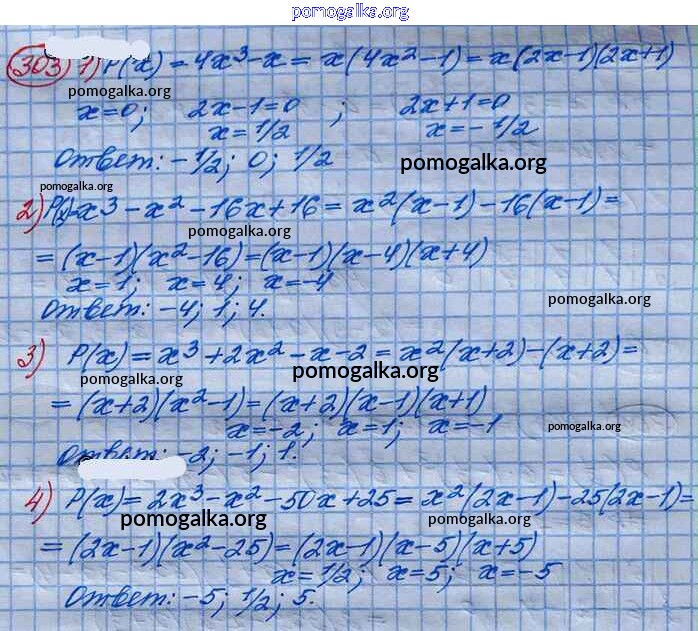 pomogalka.org
303) 1) P(x) = 4x³-x = x(4x²-1) = x(2x-1)(2x+1)
pomogalka.org
x=0; 2x-1=0 ; 2x+1=0
x=1/2 x=-1/2
Ответ: -1/2; 0; 1/2
pomogalka.org
pomogalka.org
2) P(x)=x³-x²-16x+16 = x²(x-1)-16(x-1)=
pomogalka.org
=(x-1)(x²-16)=(x-1)(x-4)(x+4)
x=1; x=4; x=-4
pomogalka.org
Ответ: -4; 1; 4.
3) P(x) = x³+2x²-x-2 = x²(x+2)-(x+2)=
pomogalka.org
pomogalka.org
= (x+2)(x²-1)=(x+2)(x-1)(x+1)
x=-2; x=1; x=-1
pomogalka.org
Ответ: -2; -1; 1.
4) P(x) = 2x³-x²-50x+25 = x²(2x-1)-25(2x-1)=
pomogalka.org
pomogalka.org
= (2x-1)(x²-25)=(2x-1)(x-5)(x+5)
x=1/2; x=5; x=-5
Ответ: -5; 1/2; 5.
pomogalka.org